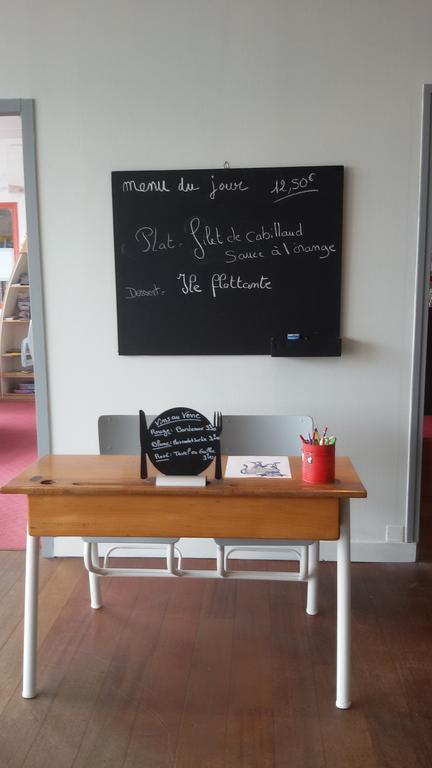 menu du jour 12,50€
Plat : filet de Cabillaud
Sauce à l'orange
Dessert : Ile flottante
Vins au Verre
Rouge : Bordeaux
Blanc :
Rosé :